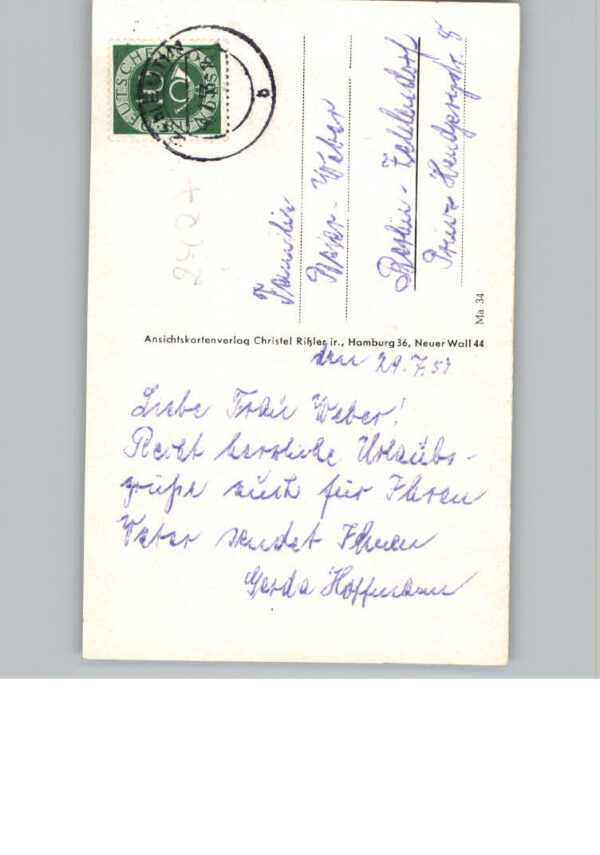 DEUTSCHE BUNDESPOST
10
b
Familie
Meier-Weber
Berlin-Zehlendorf
Ma 34
Ansichtskartenverlag Christel Rißler jr., Hamburg 36, Neuer Wall 44
den 29.7.53
Liebe Frau Weber!
Recht herzliche Urlaubs-
grüße auch für Ihren
Vater sendet Ihnen
Gerda Hoffmann